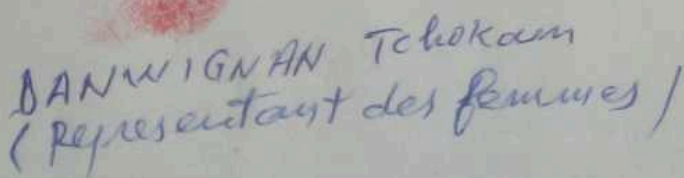 DANWIGNAN Tchokam
(Representant des femmes)